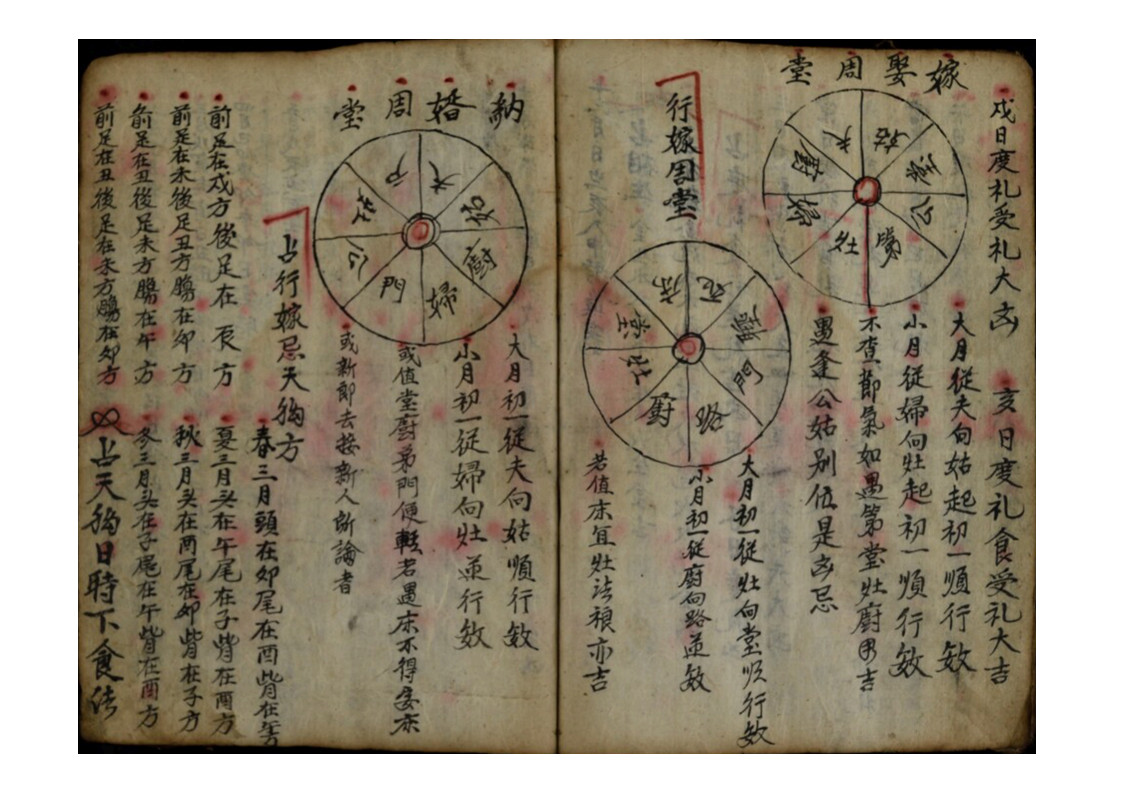 戌日度礼受礼大凶 亥日度礼食受礼大吉
嫁娶周堂
夫姑堂公翁灶婦廚
大月從夫向姑起初一順行数
小月從婦向灶起初一順行数
不查節氣如遇第堂灶廚用吉
遇逢公姑别伍是凶忌
行嫁周堂
死睡門路廚灶堂床
大月初一從灶向堂順行数
小月初一從廚向路逆数
若值床宜灶法禳亦吉
納婚周堂
夫姑廚婦門公灶戶
大月初一從夫向姑順行数
小月初一從婦向灶逆行数
或值堂廚弟門便輕若遇床不得安床
或新郎去接新人所論者
占行嫁忌天狗方
春三月頭在卯尾在酉背在午方
前足在戌方後足在辰方
夏三月头在午尾在子背在酉方
前足在未後足丑方腸在卯方
秋三月头在酉尾在卯背在子方
前足在丑後足未方腸在午方
冬三月头在子尾在午背在酉方
前足在丑後足在未方腸在卯方
占天狗日時下食法